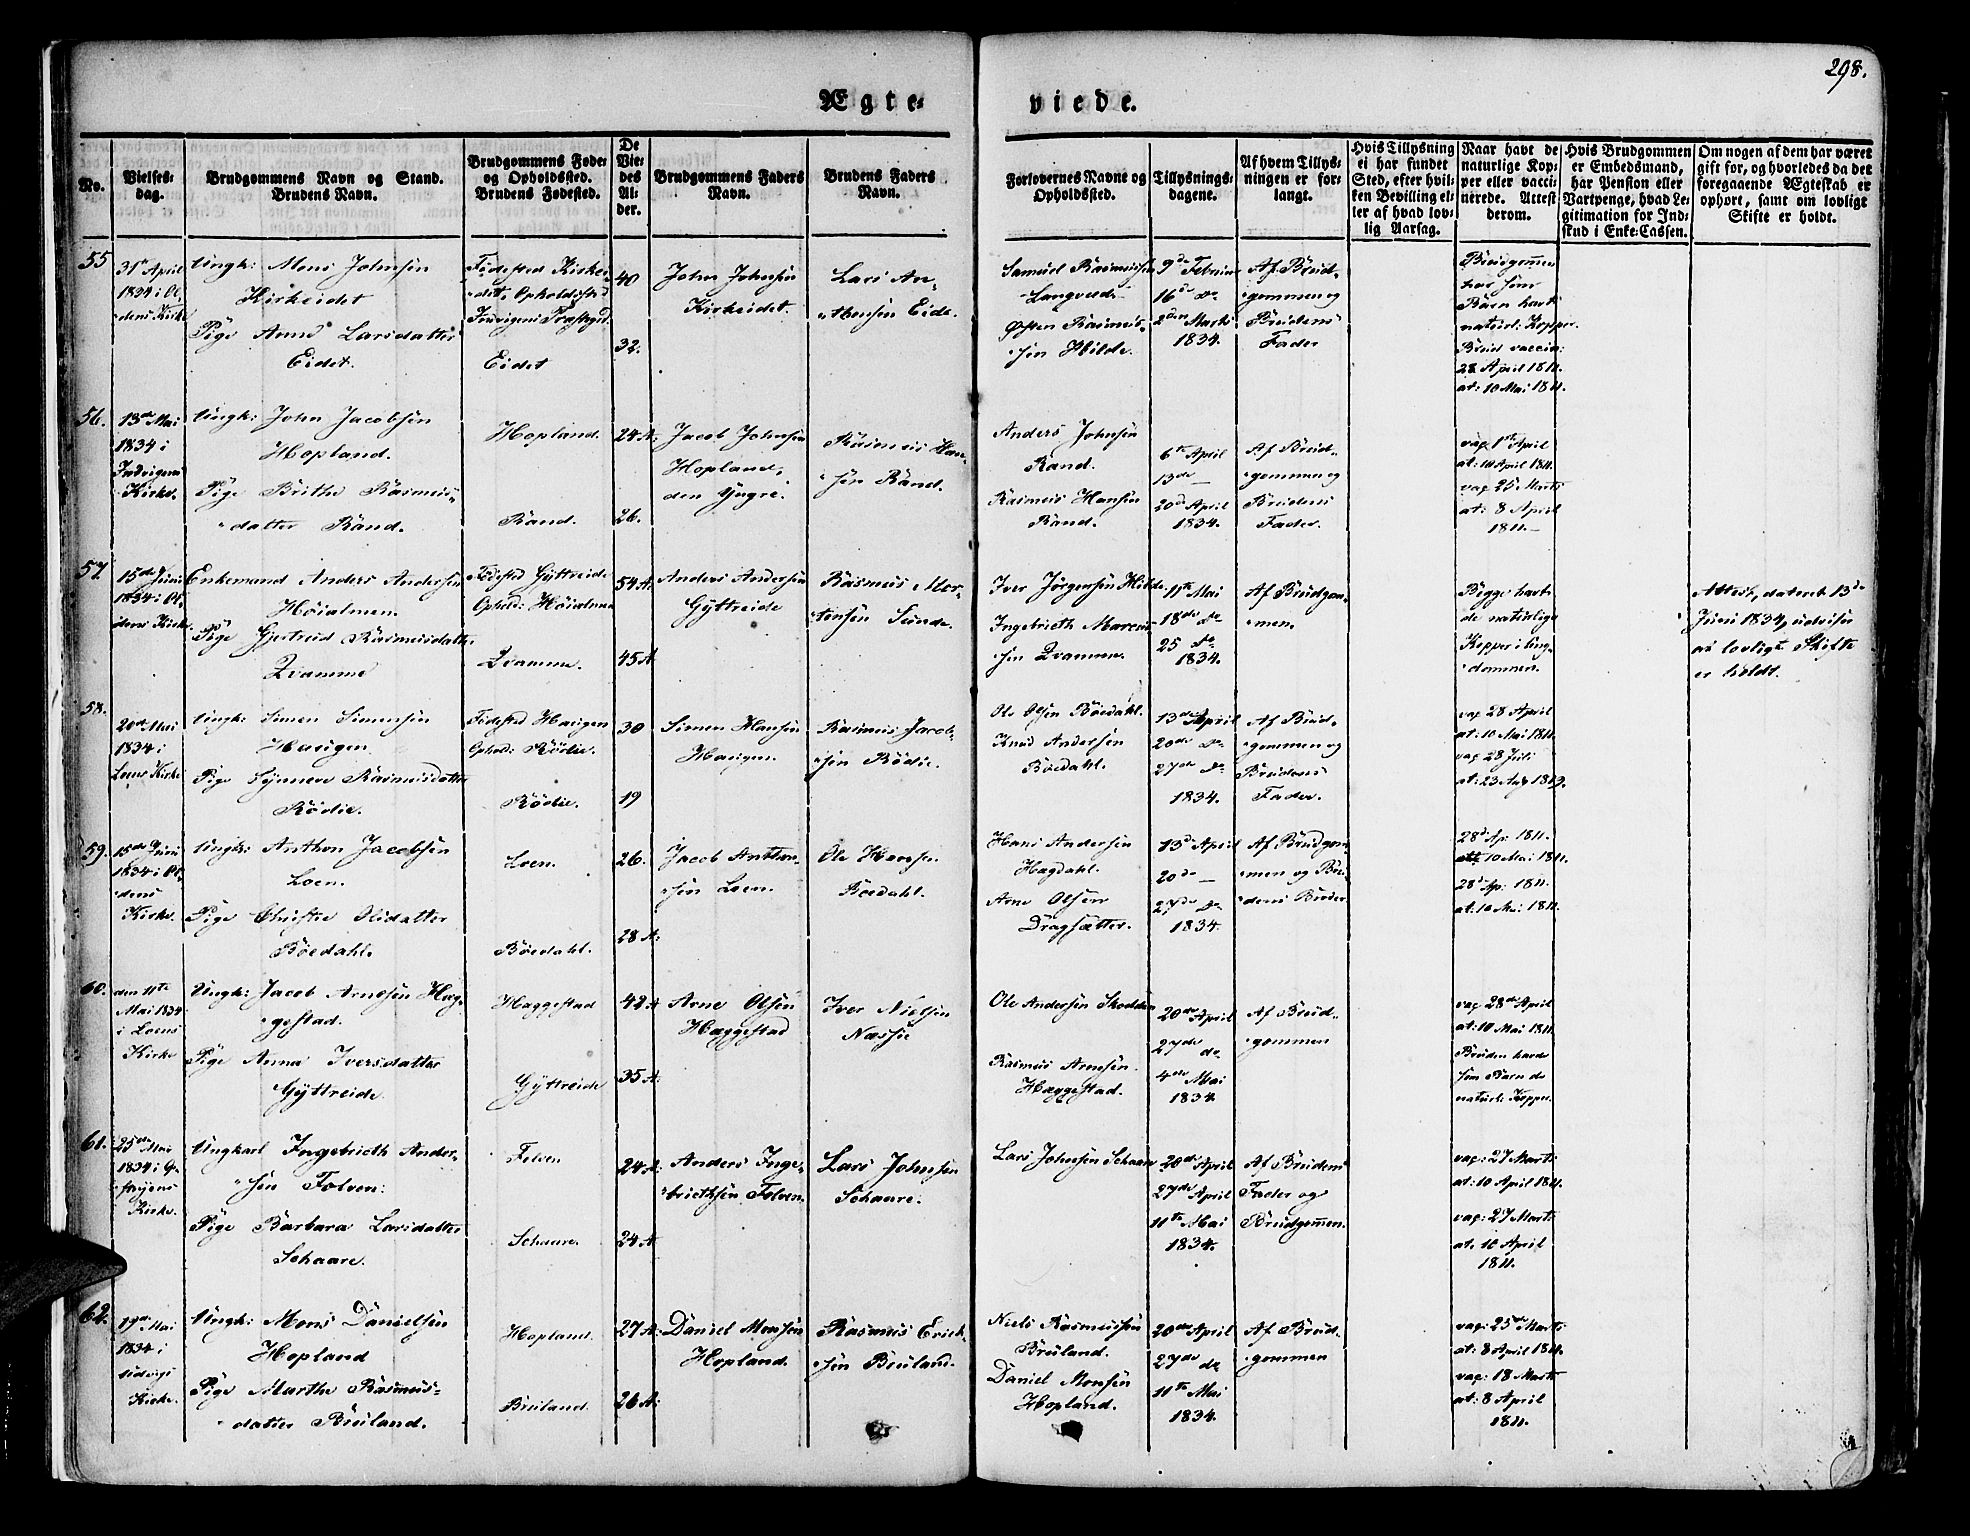 298.
Ægte=
viede.
No.
Vielses-
dag.
Brudgommens Navn og Stand.
Brudens Navn.
Brudgommens Føde-
og Opholdssted.
Brudens Fødested.
De
Vie-
des
Al-
der.
Brudgommens Faders
Navn.
Brudens Faders
Navn.
Forlovernes Navne og
Opholdssted.
Tillysnings-
dagene.
Af hvem Tillys-
ningen er for-
langt.
Hvis Tillysning
ei har fundet
Sted, efter hvil-
ken Bevilling el-
ler af hvad lov-
lig Aarsag.
Naar havt de
naturlige Kop-
per eller vacci-
nerede. Attest
derom.
Hvis Brudgommen
er Embedsmand,
har Pension eller
Vartpenge, hvad Le-
gitimation for Ind-
skud i Enke-Cassen.
Om nogen af dem har været
gift før, og hvorledes da det
foregaaende Ægteskab er
ophørt, samt om lovligt
Skifte er holdt.
55
31 April
1834 i Ol,
dens Kirke
Ungk: Mons Johnsen
Kirkeidet
Pige Anne Larsdatter
Eidet.
Fødested Kirke-
det, Opholdssted
Indvigens Præstegd
Eidet
40
32.
John Johnsen
Kirkeidet.
Lars An-
thonsen Eide.
Samuel Rasmussen
Langvede
Østen Rasmus-
sen Hilde.
9de Februar
16de do
2den Marts
1834.
Af Brud-
gommen og
Brudens
Fader
Brudgommen
har som
Barn havt
naturl: Kopper.
Brud vaccin:
28 April 1811.
at: 10 Mai 1811.
56.
13de Mai
1834 i
Indvigens
Kirke.
Ungk: John Jacobsen
Hopland.
Pige Brithe Rasmus-
datter Rand.
Hopland.
Rand.
24 A.
26.
Jacob Johnsen
Hopland,
den Yngre.
Rasmus Han-
sen Rand.
Anders Johnsen
Rand.
Rasmus Hansen
Rand.
6te April
13de —
20de April
1834.
Af Brud-
gommen og
Brudens
Fader.
vac. 1ste April
at: 10 April 1811.
vac. 25 Marts
at: 8 April
1811.
57.
15de Juni
1834 i Ol,
dens Kirke
Enkemand Anders Andersen
Höialmen.
Pige Gjertrud Rasmusdatter
Qvamme
Fødested Gyttreide
Ophold: Höialmen
Qvamme.
54 A.
45 A
Anders Andersen
Gyttreide
Rasmus Mor-
tensen Sunde.
Iver Jörgensen Hilde
Ingebrieth Marcus-
sen Qvamme.
11te Mai
18de do
25 do
1834.
Af Brudgom-
men.
Begge havt
de naturlige
Kopper i Ung-
dommen.
Attest, dateret 13de
Juni 1834, udviser
at lovligt Skifte
er holdt.
58.
20de Mai
1834 i
Loens Kirke
Ungk: Simen Simensen
Haugen
Pige Synneve Rasmusdatter
Rödie.
Fødested Haugen
Ophold: Rödie.
Rödie.
30
19
Simen Hansen
Haugen.
Rasmus Jacob-
sen Rödie.
Ole Olsen Böedahl.
Knud Andersen
Böedahl.
13de April
20de do
27de do
1834.
Af Brud-
gommen og
Brudens
Fader.
vac 28 April
at: 10 Mai 1811.
vac 28 Juli
at: 23 Aug 1819.
59.
15de Juni
1834 i Ol-
dens
Kirke.
Ungk: Anthon Jacobsen
Loen.
Pige Christie Olsdatter
Böedahl.
Loen.
Böedahl.
26.
28 A.
Jacob Anthon-
sen Loen.
Ole Hansen
Böedahl.
Hans Andersen
Hagdahl.
Arne Olsen
Dragsætter.
13de April
20de —
27de do
1834.
Af Brudgom-
men og Bru-
dens Broder
28de Ap: 1811.
att: 10 Mai 1811.
28de Ap: 1811.
at: 10 Mai 1811.
60.
den 11te
Mai 1834
i Loens
Kirke
Ungk: Jacob Arnesen Hæg-
gestad.
Pige Anna Iversdatter
Gyttreide.
Hæggestad
Gyttreide
42 A
35 A.
Arne Olsen
Hæggestad
Iver Nielsen
Næssie
Ole Andersen Skadden
Rasmus Arnesen
Hæggestad.
20de April
27de do
4de Mai
1834.
Af Brud-
gommen
vac 28de April
at: 10 Mai 1811.
Bruden havde
som Barn de
naturl: Kopper.
61.
25de Mai
1834 i
Kirke.
Ungkarl Ingebrieth Ander-
sen Folven:
Pige Barbara Larsdatter
Schaare.
Folven
Schaare.
24 A.
24 A
Anders Inge-
briethsen Folven
Lars Johnsen
Schaare.
Lars Johnsen Schaare
20de April
27de April
11te Mai
1834.
Af Brudens
Fader og
Brudgommen.
vac: 27 Marts
at: 10 April 1811.
vac: 27 Marts
at: 10 April
1811.
62.
19de Mai
1834 i
Kirke.
Ungk: Mons Danielsen
Hopland
Pige Marthe Rasmus-
datter Bruland.
Hopland.
Bruland.
27 A.
26 A.
Daniel Monsen
Hopland.
Rasmus Erick-
sen Bruland.
Niels Rasmussen
Bruland.
Daniel Monsen
Hopland.
20de April
27de do
11te Mai
1834.
Af Brud-
gommen
vac: 25de Marts
at: 8 April 1811.
vac: 18 Marts
at: 8 April
1811.